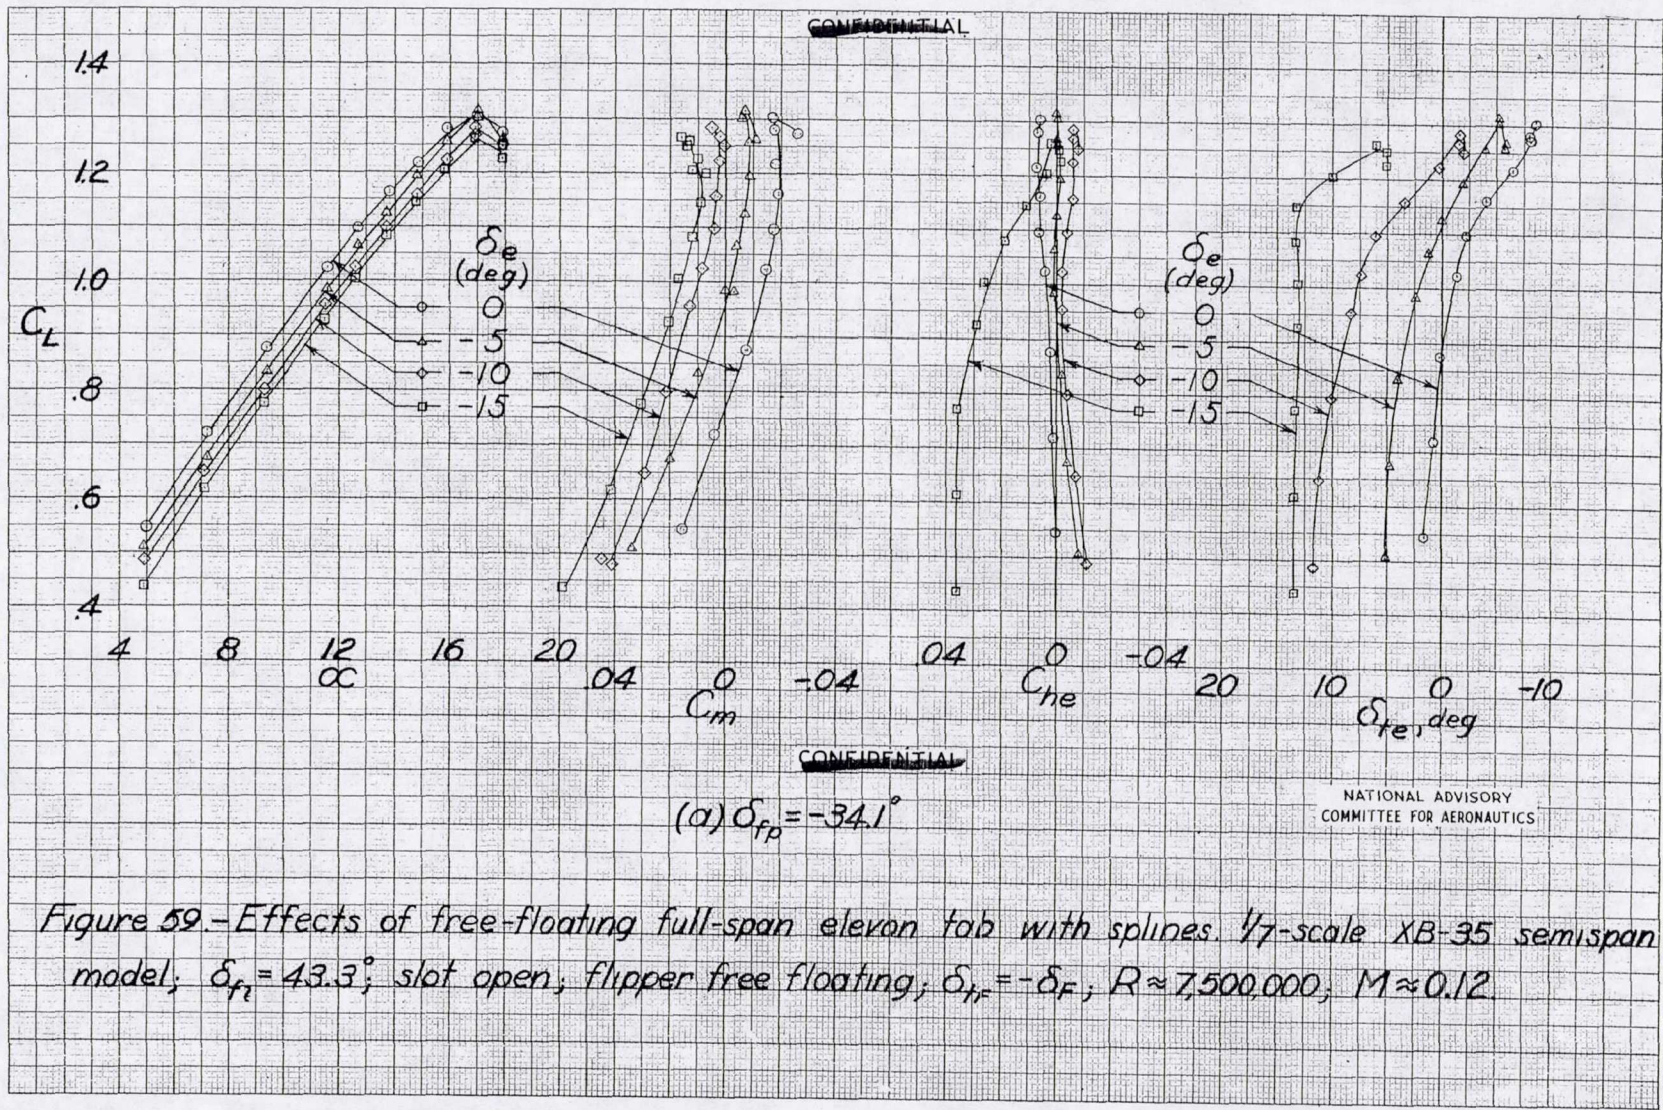 CONFIDENTIAL
1.4
1.2
1.0
.8
.6
.4
C_L
δ_e
(deg)
0
-5
-10
-15
δ_e
(deg)
0
-5
-10
-15
4 8 12 16 20
α
.04 0 -.04
C_m
.04 0 -.04
C_he
20 10 0 -10
δ_te, deg
CONFIDENTIAL
(a) δ_fp = -34.1°
NATIONAL ADVISORY
COMMITTEE FOR AERONAUTICS
Figure 59.- Effects of free-floating full-span elevon tab with splines. 1/7-scale XB-35 semispan
model; δ_fl = 43.3°; slot open; flipper free floating; δ_tF = -δ_F; R ≈ 7,500,000; M ≈ 0.12.